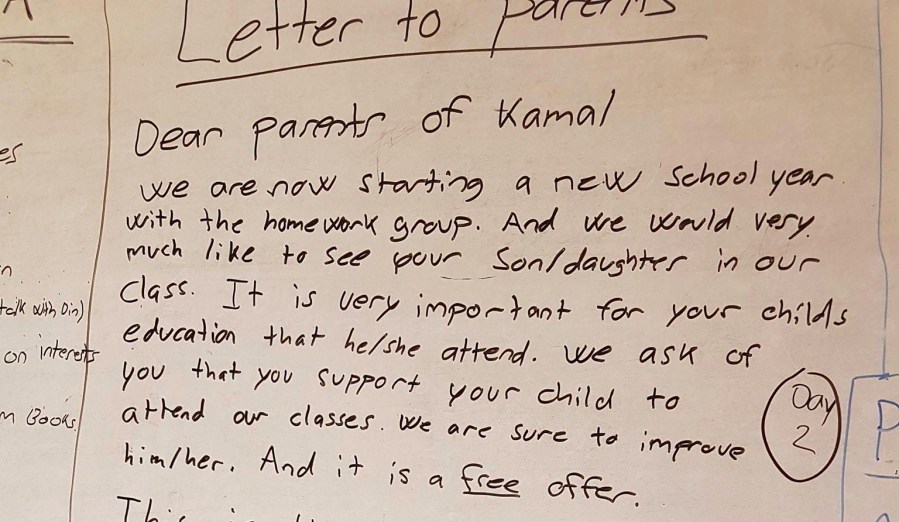 Letter to parents
Dear parents of Kamal
we are now starting a new school year
with the homework group. And we would very
much like to see your Son/daughter in our
Class. It is very important for your childs
education that he/she attend. we ask of
you that you support your child to
attend our classes. we are sure to improve
him/her. And it is a free offer.
This
es
n
talk with Din)
on interests
m Books
Day
2
P